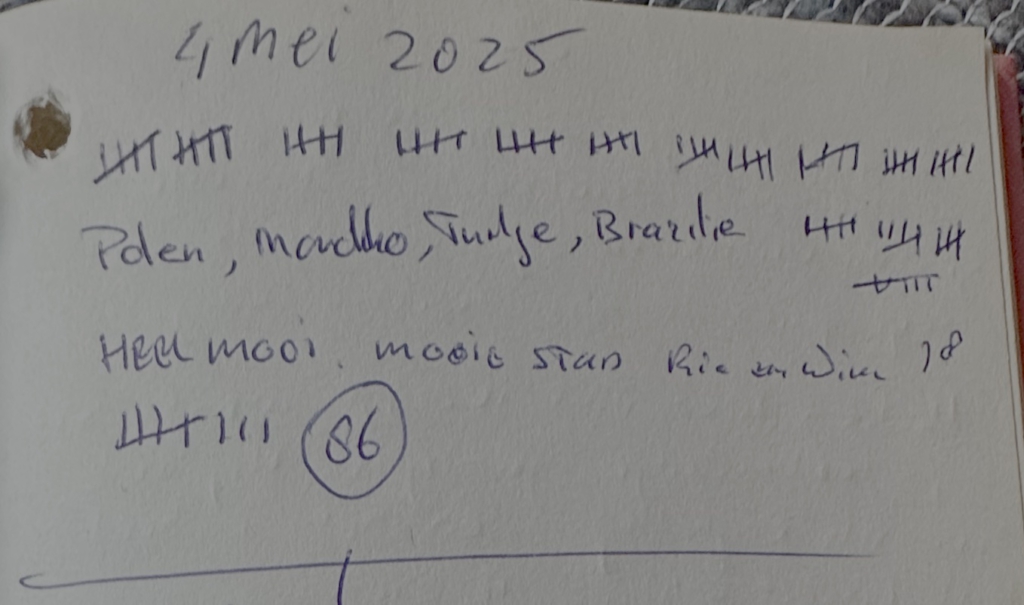 4 mei 2025
Polen, Marokko, Turkije, Brazilie
HEEL MOOI. mooie STAD Ria en Wim 18
86